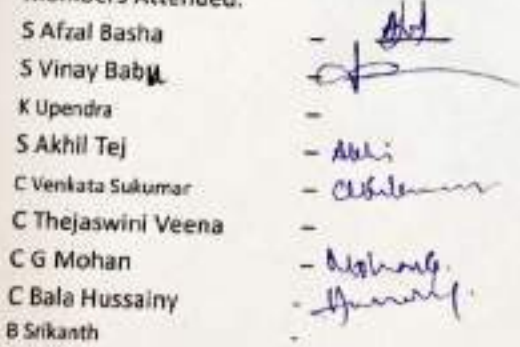 Members Attended:
S Afzal Basha –
S Vinay Babu –
K Upendra –
S Akhil Tej – Akhi
C Venkata Sukumar –
C Thejaswini Veena –
C G Mohan – Mohan G.
C Bala Hussainy -
B Srikanth -